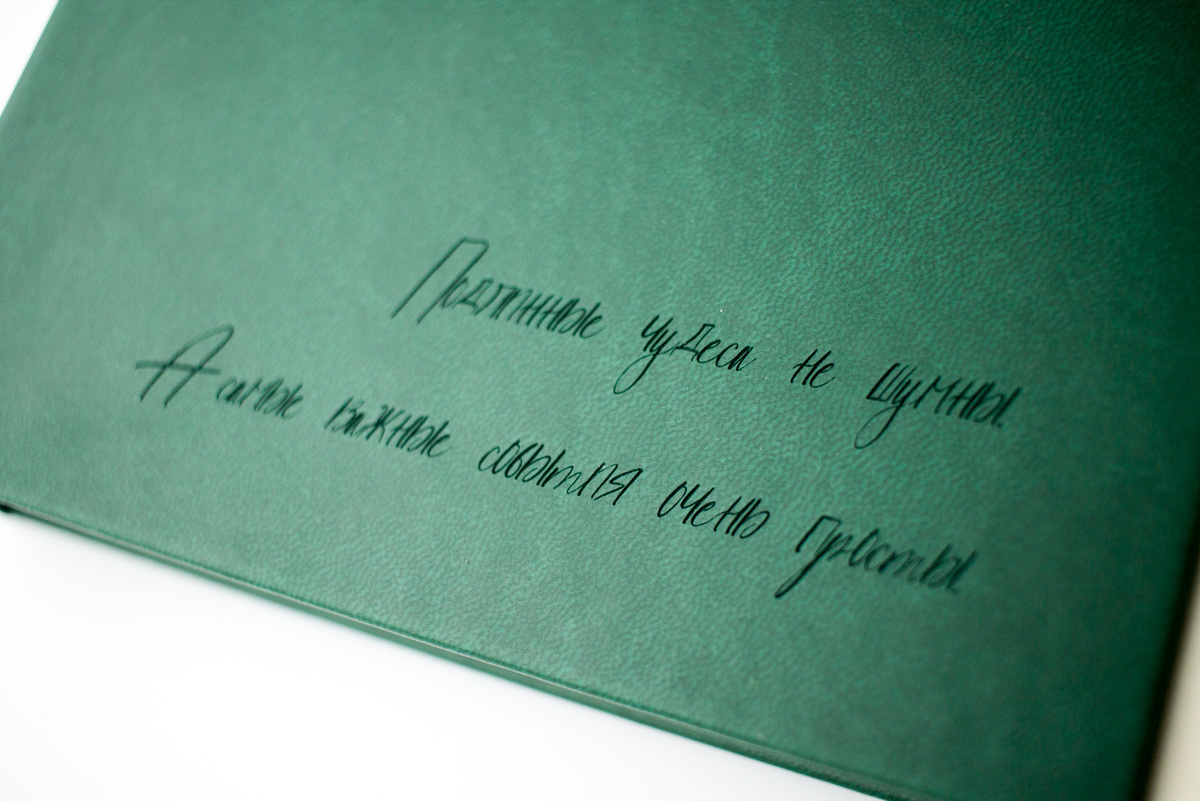 Подлинные чудеса не шумны.
А самые важные события очень просты.